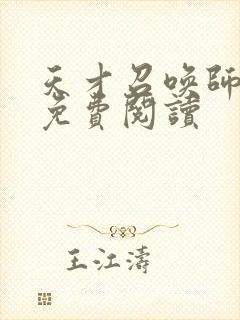 天才召喚師
免費閱讀
王江濤